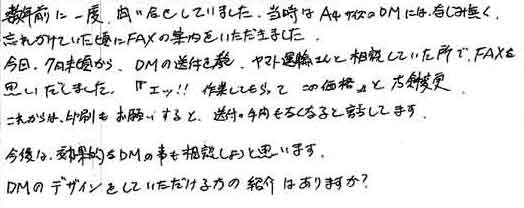 数年前に一度、問い合せしていました。当時は A4サイズのDMには、返事無く、
忘れかけていた頃にFAXの案内をいただきました。
今回、7月末頃から、DMの送付を考え、ヤマト運輸さんと相談していた所で、FAXを
思いだしました。『エッ!! 作業してもらって この価格』と 方針変更
これからは、印刷も お願いすると、送付の手間もなくなると話してます。
今後は、効果的なDMの事も相談しようと思います。
DMの デザインをしていただける方の 紹介 はありますか?